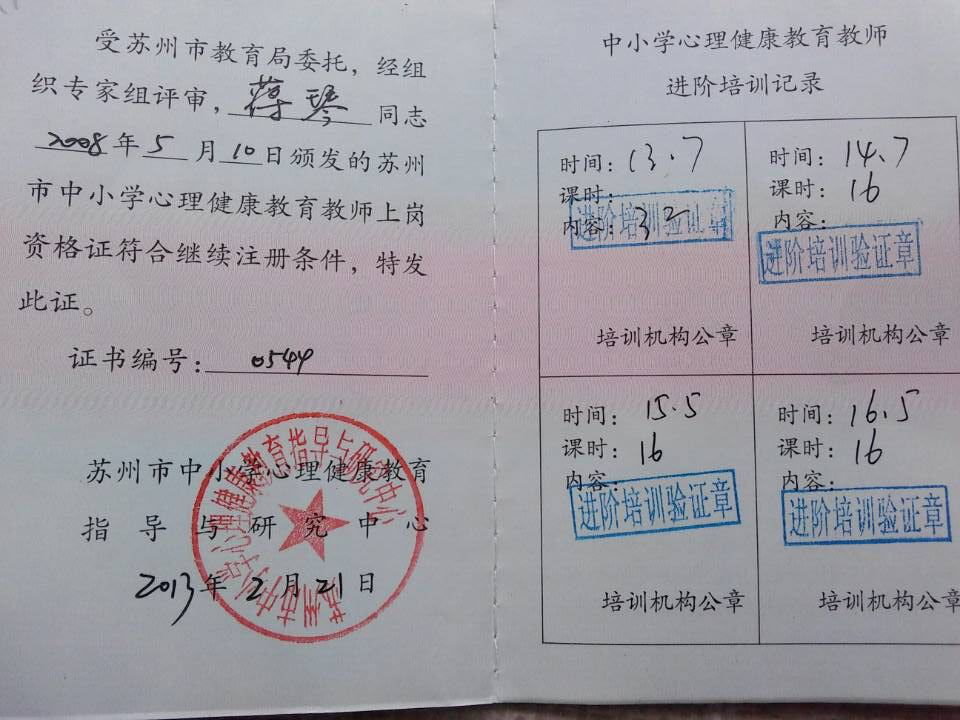 受苏州市教育局委托，经组
织专家组评审，蒋琴同志
2008年5月10日颁发的苏州
市中小学心理健康教育教师上岗
资格证符合继续注册条件，特发
此证。
证书编号：0544
苏州市中小学心理健康教育
指导与研究中心
2013年2月21日
苏州市中小学心理健康教育指导与研究中心
中小学心理健康教育教师
进阶培训记录
时间：13.7
课时：
内容：32
进阶培训验证章
培训机构公章
时间：14.7
课时：16
内容：
进阶培训验证章
培训机构公章
时间：15.5
课时：16
内容：
进阶培训验证章
培训机构公章
时间：16.5
课时：16
内容：
进阶培训验证章
培训机构公章